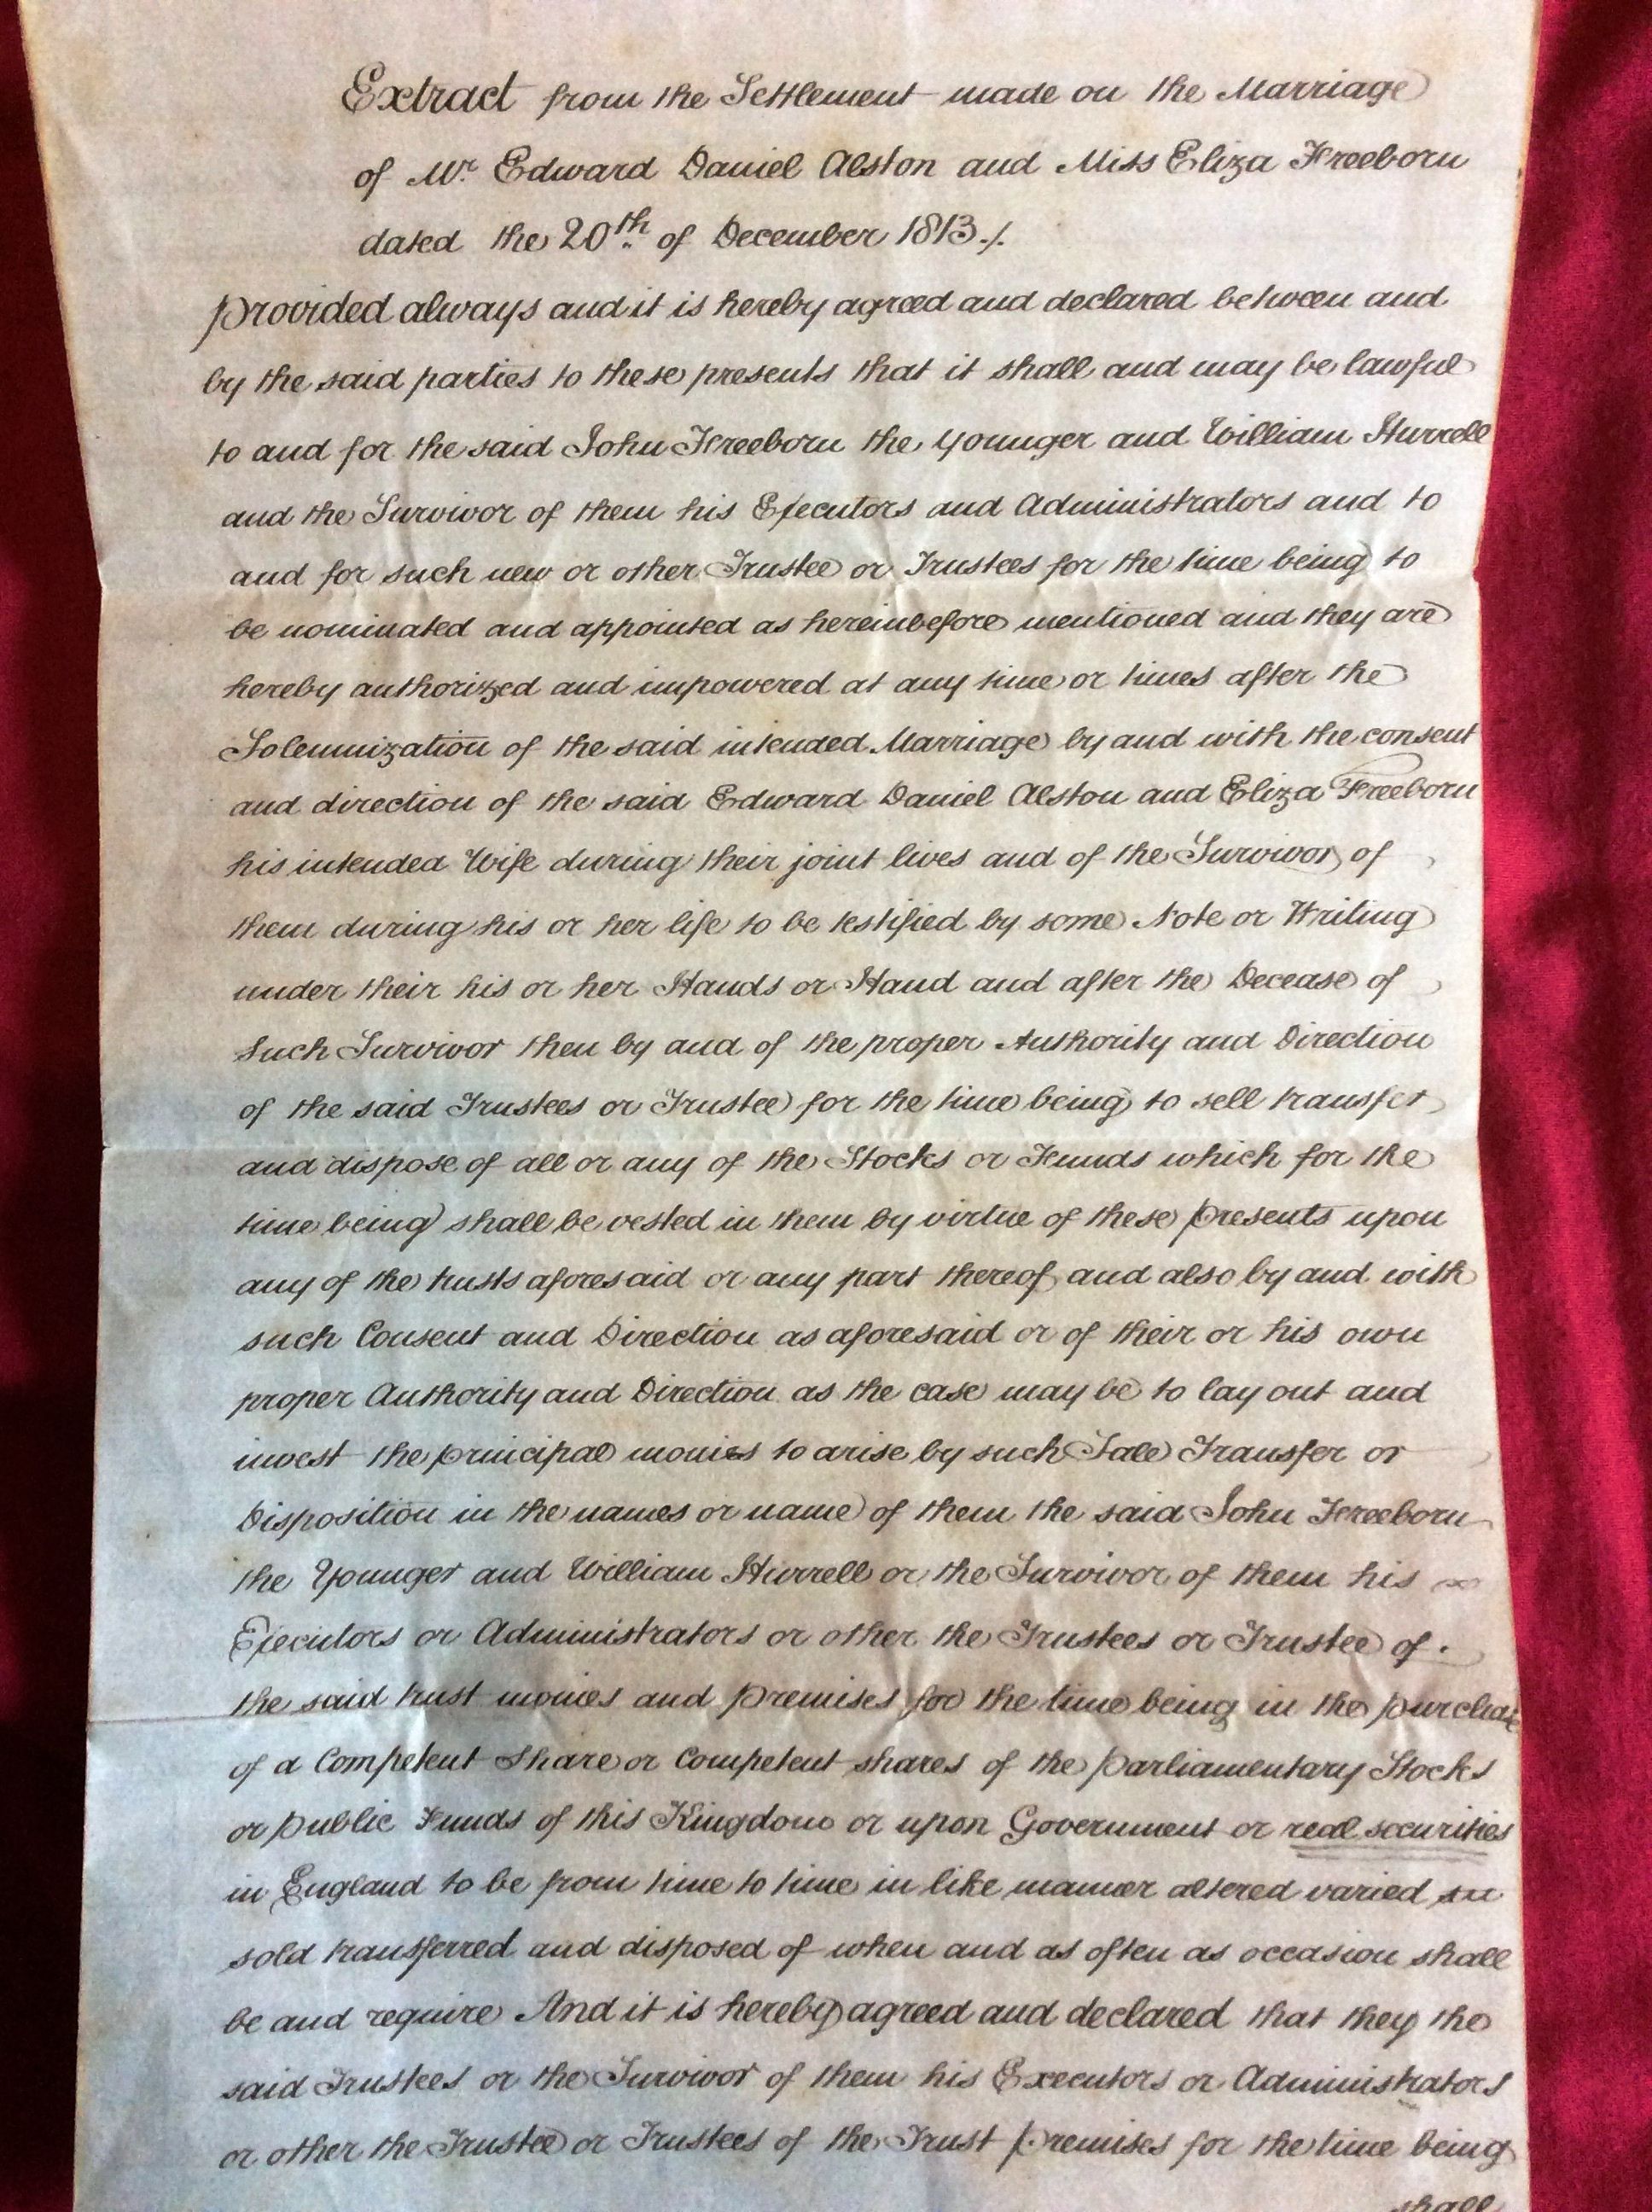 Extract from the Settlement made on the Marriage
of Mr. Edward Daniel Alston and Miss Eliza Freeborn
dated the 20th of December 1813./.
Provided always and it is hereby agreed and declared between and
by the said parties to these presents that it shall and may be lawful
to and for the said John Freeborn the younger and William Hurrell
and the Survivor of them his Executors and Administrators and to
and for such new or other Trustee or Trustees for the time being to
be nominated and appointed as hereinbefore mentioned and they are
hereby authorized and impowered at any time or times after the
Solemnization of the said intended Marriage by and with the consent
and direction of the said Edward Daniel Alston and Eliza Freeborn
his intended Wife during their joint lives and of the Survivor of
them during his or her life to be testified by some Note or Writing
under their his or her Hands or Hand and after the Decease of
Such Survivor then by and of the proper Authority and Direction
of the said Trustees or Trustee for the time being to sell transfer
and dispose of all or any of the Stocks or Funds which for the
time being shall be vested in them by virtue of these presents upon
any of the trusts aforesaid or any part thereof and also by and with
such Consent and Direction as aforesaid or of their or his own
proper Authority and Direction as the case may be to lay out and
invest the principal monies to arise by such Sale Transfer or
Disposition in the names or name of them the said John Freeborn
the Younger and William Hurrell or the Survivor of them his
Executors or Administrators or other the Trustees or Trustee of
the said trust monies and premises for the time being in the purchase
of a Competent Share or Competent shares of the Parliamentary Stocks
or public Funds of this Kingdom or upon Government or real securities
in England to be from time to time in like manner altered varied
sold transferred and disposed of when and as often as occasion shall
be and require And it is hereby agreed and declared that they the
said Trustees or the Survivor of them his Executors or Administrators
or other the Trustee or Trustees of the Trust premises for the time being
shall